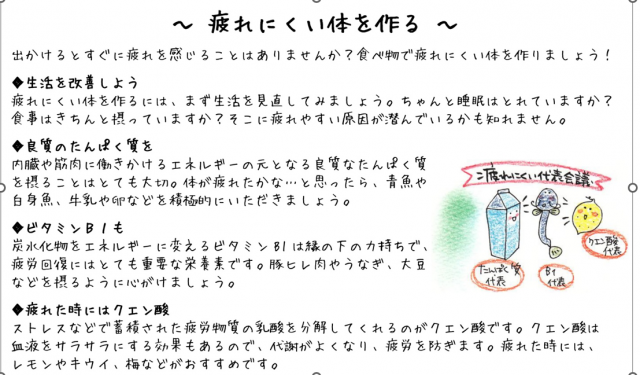 ～ 疲れにくい体を作る ～
出かけるとすぐに疲れを感じることはありませんか？食べ物で疲れにくい体を作りましょう！
◆生活を改善しよう
疲れにくい体を作るには、まず生活を見直してみましょう。ちゃんと睡眠はとれていますか？
食事はきちんと摂っていますか？そこに疲れやすい原因が潜んでいるかも知れません。
◆良質のたんぱく質を
内臓や筋肉に働きかけるエネルギーの元となる良質なたんぱく質
を摂ることはとても大切。体が疲れたかな…と思ったら、青魚や
白身魚、牛乳や卵などを積極的にいただきましょう。
◆ビタミンB1も
炭水化物をエネルギーに変えるビタミンB1は縁の下の力持ちで、
疲労回復にはとても重要な栄養素です。豚ヒレ肉やうなぎ、大豆
などを摂るように心がけましょう。
◆疲れた時にはクエン酸
ストレスなどで蓄積された疲労物質の乳酸を分解してくれるのがクエン酸です。クエン酸は
血液をサラサラにする効果もあるので、代謝がよくなり、疲労を防ぎます。疲れた時には、
レモンやキウイ、梅などがおすすめです。
疲れにくい代表会議
たんぱく質
代表
B1
代表
クエン酸
代表